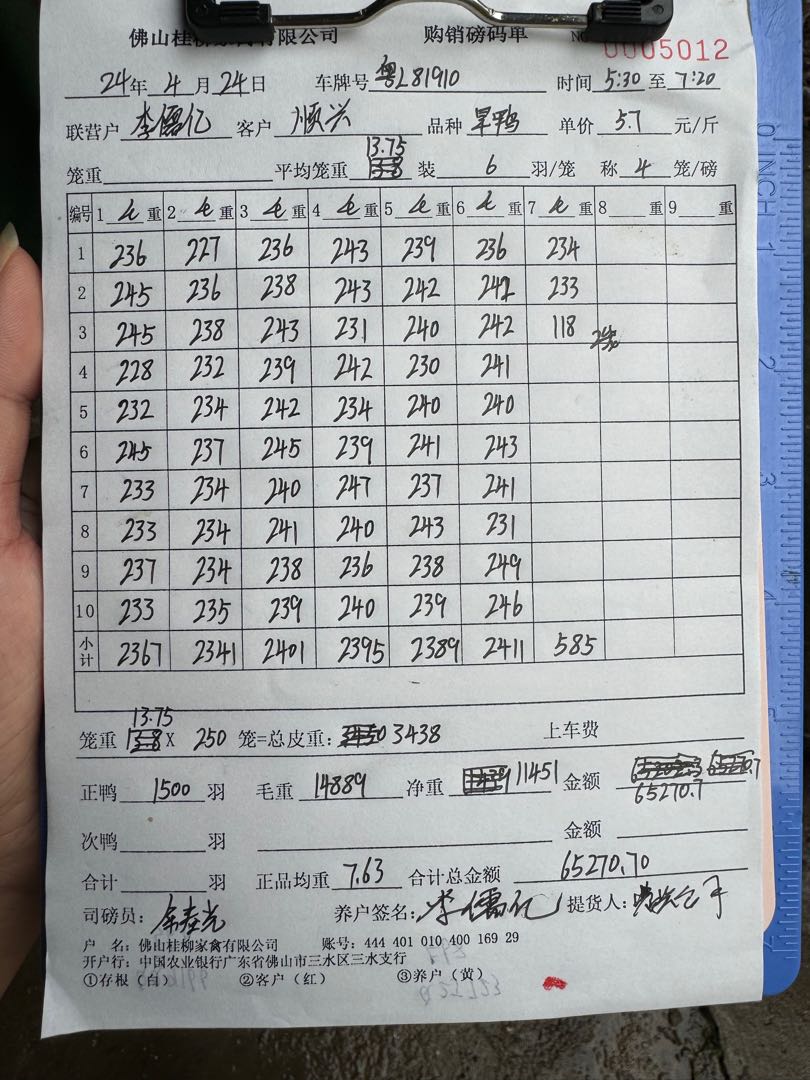 佛山桂柳家禽有限公司 购销磅码单 NO 0005012
24年 4月 24日 车牌号 粤L81910 时间 5:30 至 7:20
联营户 李儒亿 客户 顺兴 品种 旱鸭 单价 5.7 元/斤
13.75
笼重 平均笼重 装 6 羽/笼 称 4 笼/磅
编号 1 毛 重 2 毛 重 3 毛 重 4 毛 重 5 毛 重 6 毛 重 7 毛 重 8 重 9 重
1 236 227 236 243 239 236 234
2 245 236 238 243 242 242 233
3 245 238 243 231 240 242 118 2笼
4 228 232 239 242 230 241
5 232 234 242 234 240 240
6 245 237 245 239 241 243
7 233 234 240 247 237 241
8 233 234 241 240 243 231
9 237 234 238 236 238 249
10 233 235 239 240 239 246
小计 2367 2341 2401 2395 2389 2411 585
13.75
笼重 X 250 笼=总皮重: 3438 上车费
正鸭 1500 羽 毛重 14889 净重 11451 金额 65270.7
次鸭 羽 金额
合计 羽 正品均重 7.63 合计总金额 65270.70
司磅员: 养户签名: 李儒亿 提货人:
户 名: 佛山桂柳家禽有限公司 账号: 444 401 010 400 169 29
开户行: 中国农业银行广东省佛山市三水区三水支行
①存根(白) ②客户(红) ③养户(黄)